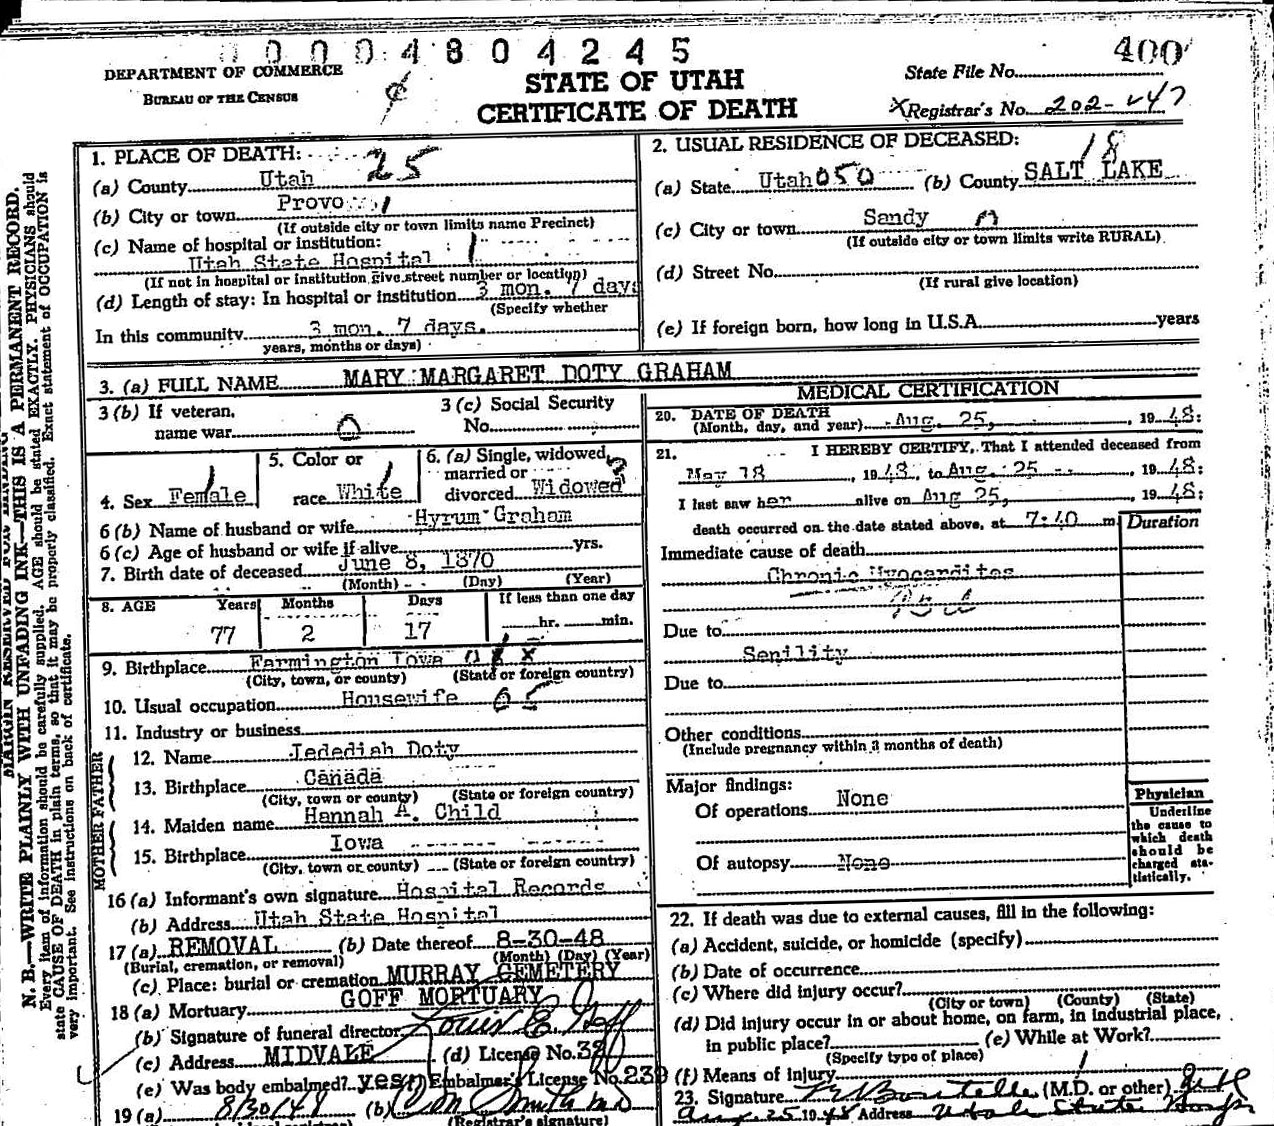 0 0 0 0 4 8 0 4 2 4 5
400
DEPARTMENT OF COMMERCE
BUREAU OF THE CENSUS
STATE OF UTAH
CERTIFICATE OF DEATH
State File No.
Registrar's No. 202-247
1. PLACE OF DEATH: 25
(a) County Utah
(b) City or town Provo 1
(If outside city or town limits name Precinct)
(c) Name of hospital or institution:
Utah State Hospital
(If not in hospital or institution give street number or location)
(d) Length of stay: In hospital or institution 3 mon. 7 days
(Specify whether
In this community 3 mon. 7 days.
years, months or days)
2. USUAL RESIDENCE OF DECEASED: 18
(a) State Utah 050 (b) County SALT LAKE
(c) City or town Sandy
(If outside city or town limits write RURAL)
(d) Street No.
(If rural give location)
(e) If foreign born, how long in U.S.A. years
3. (a) FULL NAME MARY MARGARET DOTY GRAHAM
3 (b) If veteran,
name war 0
3 (c) Social Security
No.
4. Sex Female
5. Color or
race White
6. (a) Single, widowed,
married or
divorced Widowed
6 (b) Name of husband or wife Hyrum Graham
6 (c) Age of husband or wife if alive yrs.
7. Birth date of deceased June 8, 1870
(Month) (Day) (Year)
8. AGE Years Months Days If less than one day
77 2 17 hr. min.
9. Birthplace Farmington Iowa
(City, town, or county) (State or foreign country)
10. Usual occupation Housewife
11. Industry or business
FATHER
12. Name Jedediah Doty
13. Birthplace Canada
(City, town or county) (State or foreign country)
MOTHER
14. Maiden name Hannah A. Child
15. Birthplace Iowa
(City, town or county) (State or foreign country)
16 (a) Informant's own signature Hospital Records
(b) Address Utah State Hospital
17 (a) REMOVAL (b) Date thereof 8-30-48
(Burial, cremation, or removal) (Month) (Day) (Year)
(c) Place: burial or cremation MURRAY CEMETERY
18 (a) Mortuary GOFF MORTUARY
(b) Signature of funeral director Louis E. Goff
(c) Address MIDVALE (d) License No. 32
(e) Was body embalmed? yes (f) Embalmer's License No. 239
19 (a) 8/30/48 (b)
(Registrar's signature)
MEDICAL CERTIFICATION
20. DATE OF DEATH
(Month, day, and year) Aug. 25, 1948
21. I HEREBY CERTIFY, That I attended deceased from
May 18, 1948, to Aug. 25, 1948
I last saw her alive on Aug 25, 1948
death occurred on the date stated above, at 7:40 m
Duration
Immediate cause of death
Chronic Myocardites
Due to
Senility
Due to
Other conditions
(Include pregnancy within 3 months of death)
Major findings:
Of operations None
Of autopsy None
Physician
Underline
the cause to
which death
should be
charged sta-
tistically.
22. If death was due to external causes, fill in the following:
(a) Accident, suicide, or homicide (specify)
(b) Date of occurrence
(c) Where did injury occur?
(City or town) (County) (State)
(d) Did injury occur in or about home, on farm, in industrial place,
in public place? (e) While at Work?
(Specify type of place)
(f) Means of injury
23. Signature (M.D. or other)
Aug 25 1948 Address Utah State Hosp
MARGIN RESERVED FOR BINDING
N. B.—WRITE PLAINLY WITH UNFADING INK—THIS IS A PERMANENT RECORD.
Every item of information should be carefully supplied. AGE should be stated EXACTLY. PHYSICIANS should
state CAUSE OF DEATH in plain terms, so that it may be properly classified. Exact statement of OCCUPATION is
very important. See instructions on back of certificate.